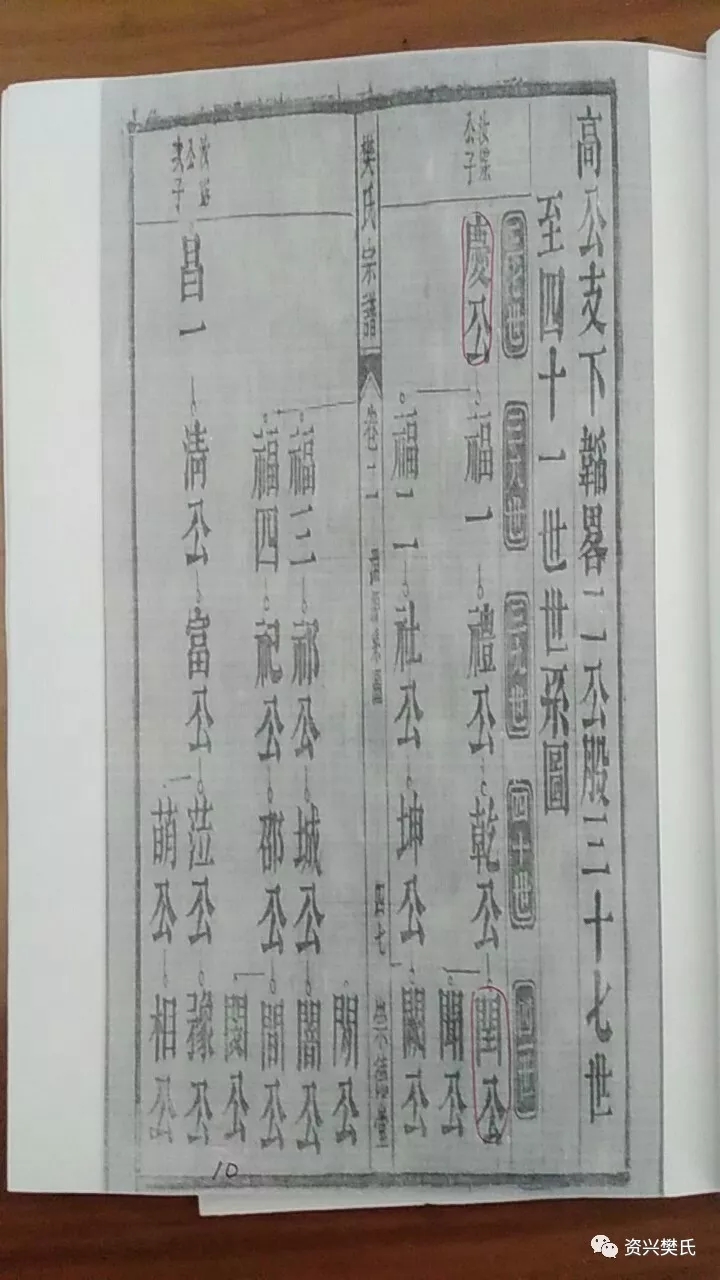 高公支下韜畧二公殷三十七世
至四十一世世系圖
三十七世
三十八世
三十九世
四十世
四十一世
公子
慶公
福一
禮公
乾公
閏公
聞公
福二
社公
坤公
闕公
樊氏宗譜
卷二
四七
崇德堂
福三
祁公
城公
閣公
福四
祀公
邵公
間公
次子
昌一
清公
富公
蒞公
豫公
萌公
相公
10
资兴樊氏